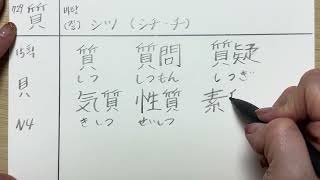 729 質 바탕
(질) シツ (シチ・チ)
15획 質 質問 質疑
しつ しつもん しつぎ
貝 気質 性質 素
N4 きしつ せいしつ